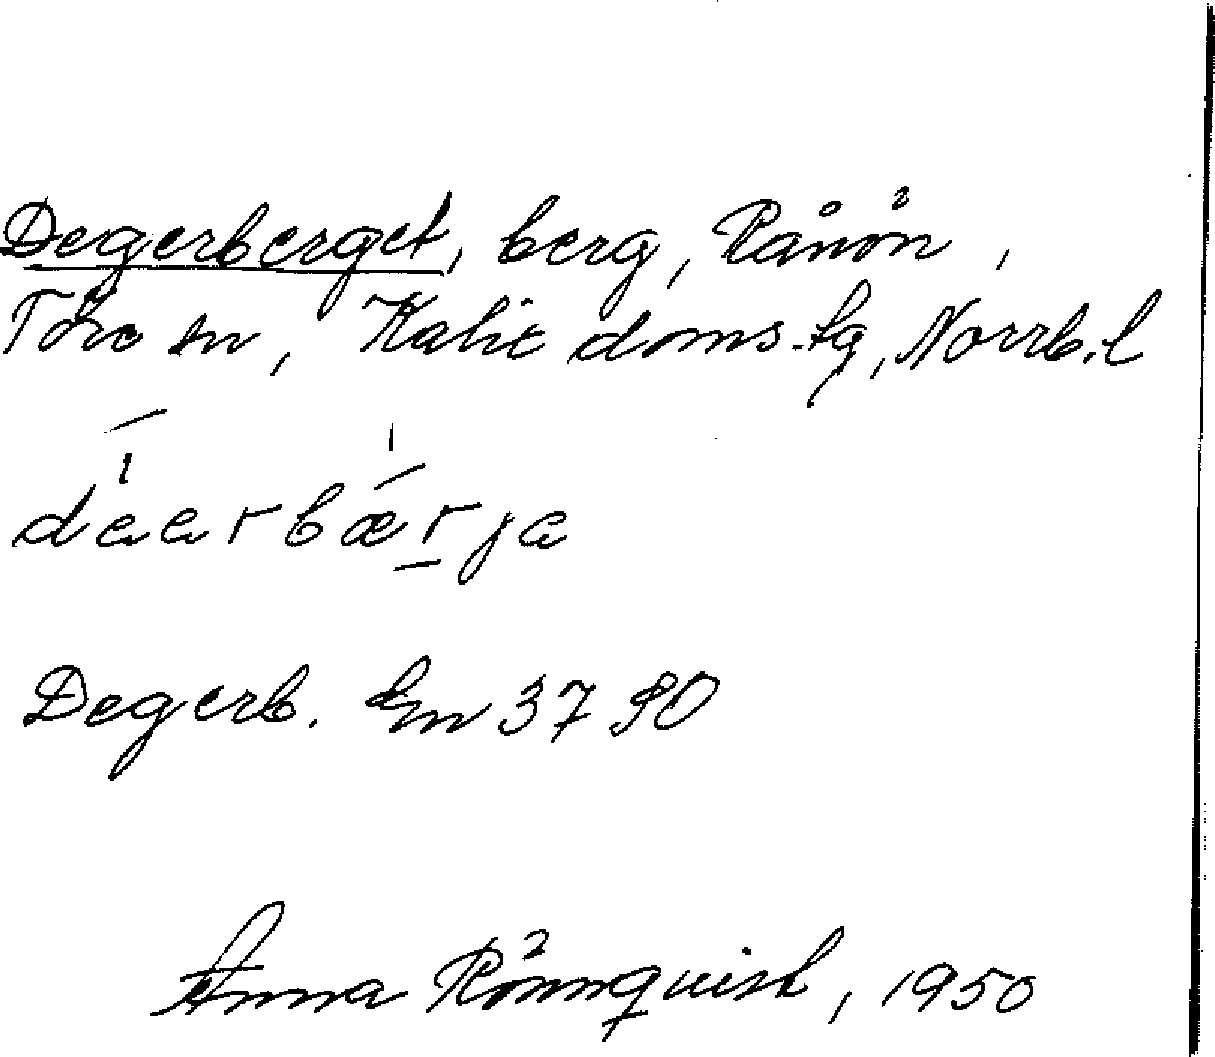 Degerberget, berg, Rånön,
Töre sn, Kalix doms.-sg, Norrb.l
Degerb. Em 37 90
Anna Rönnquist, 1950